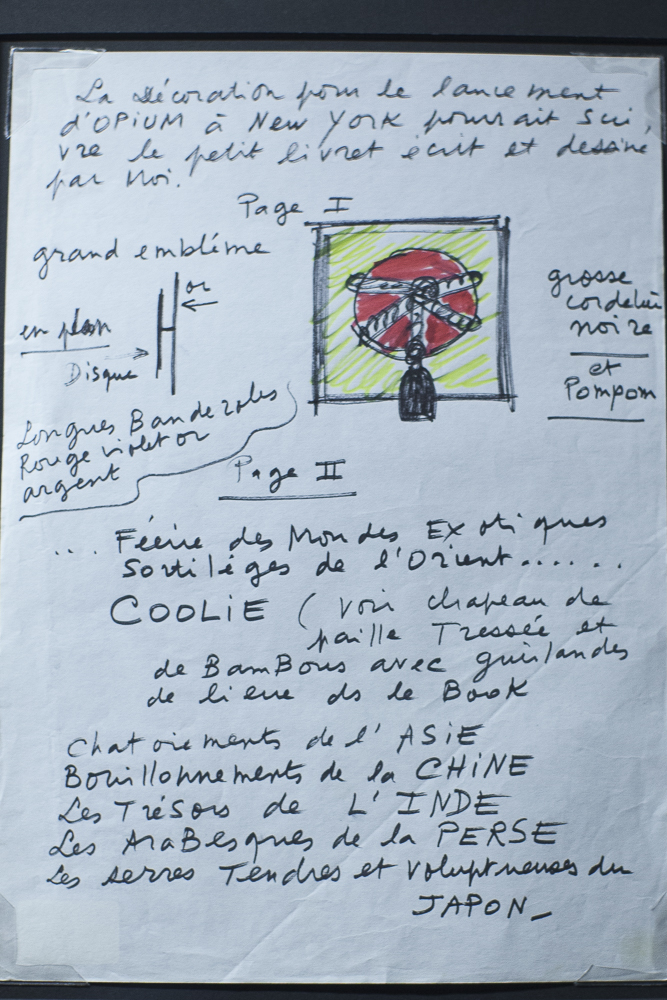 La Décoration pour le lancement
d'OPIUM à NEW YORK pourrait sui,
vre le petit livret écrit et dessiné
par Moi.
Page I
grand emblème
or
en plan
Disque
grosse
cordeliè
noire
et
Pompom
Longues Banderoles
Rouge violet or
argent
Page II
... Féerie des Mondes Exotiques
Sortilèges de l'Orient......
COOLIE ( voir chapeau de
paille Tressée et
de BamBous avec guirlandes
de lierre ds le Book
Chatoiements de l'ASIE
Bouillonnements de la CHINE
Les Trésors de L'INDE
Les AraBesques de la PERSE
Les serres Tendres et voluptueuses du
JAPON_